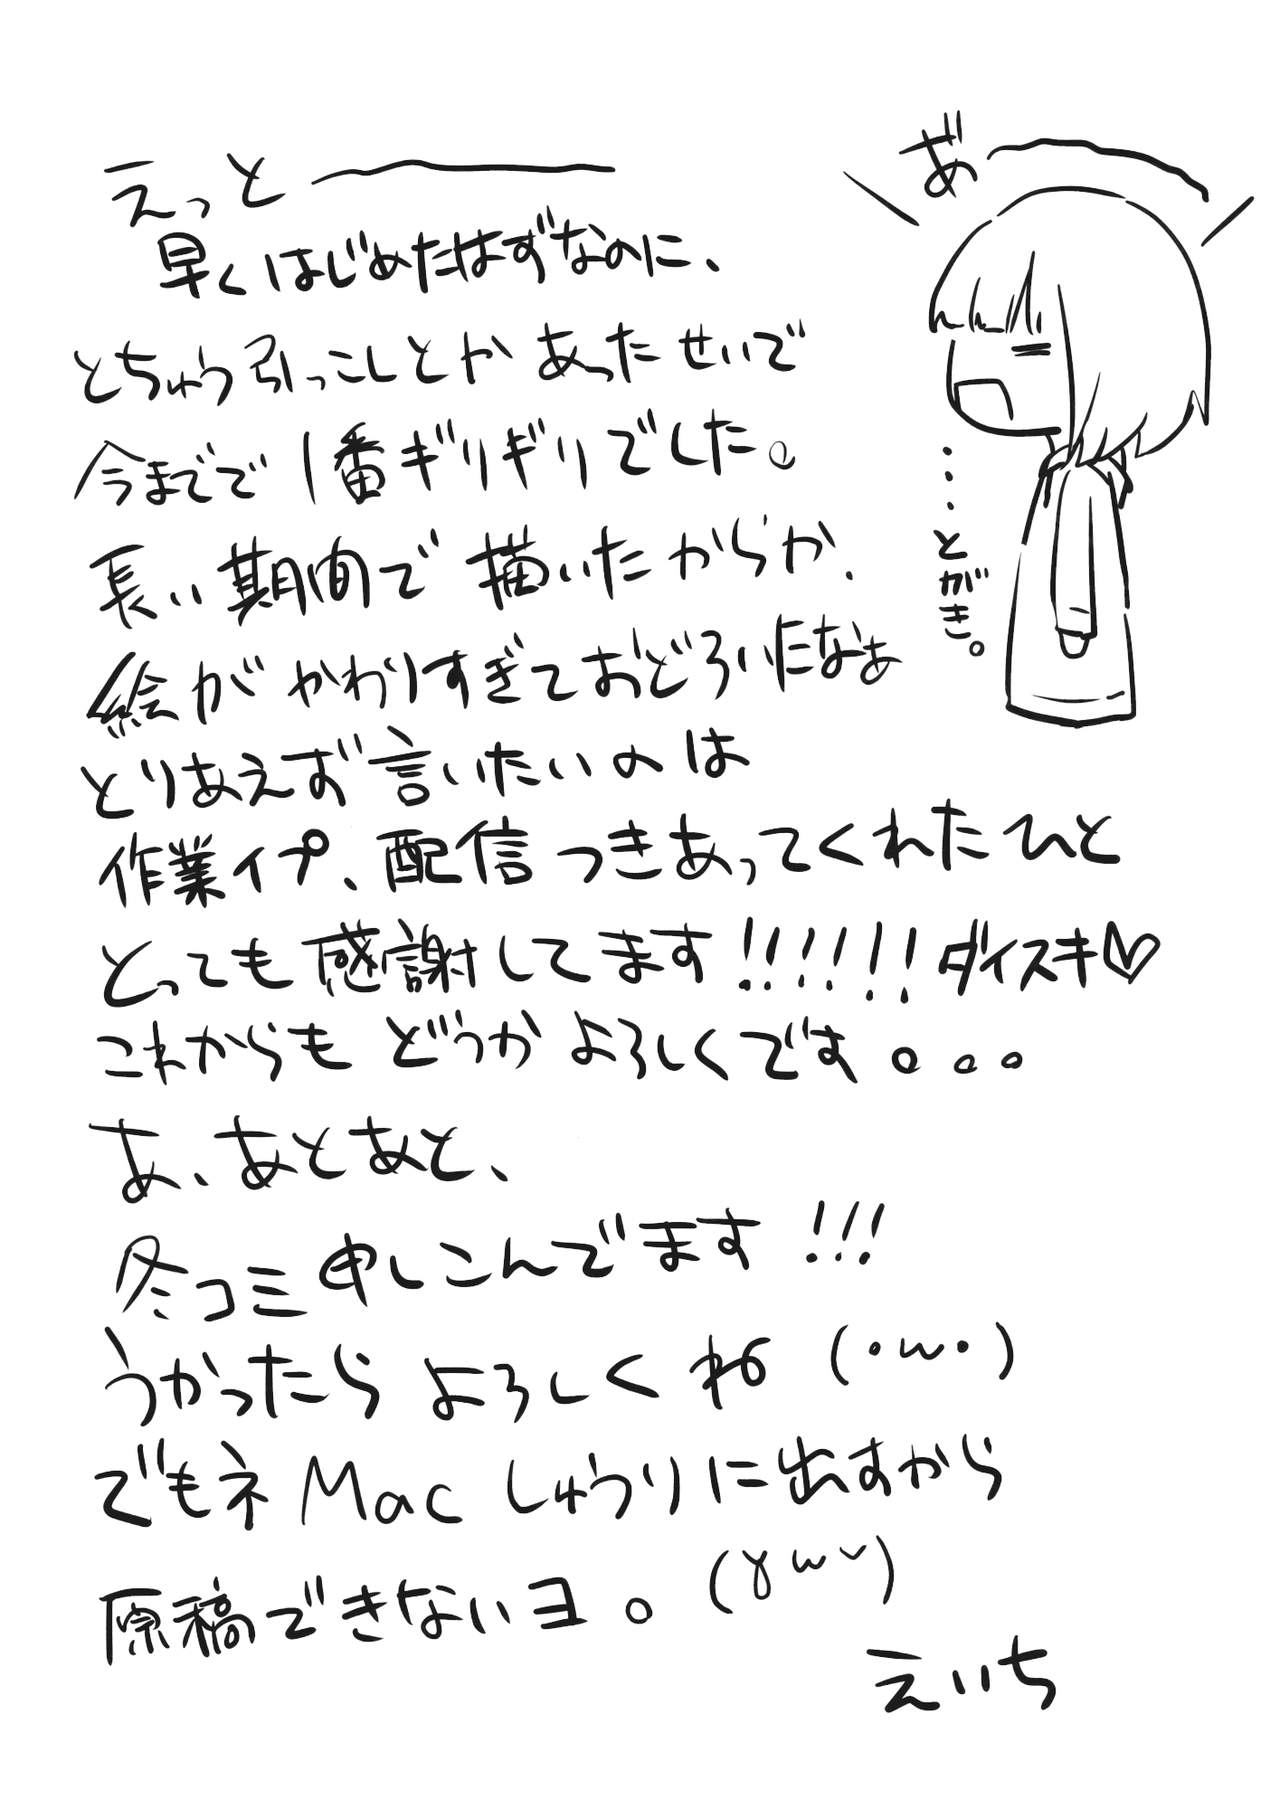 あ゛
…とがき。
えっと――
早くはじめたはずなのに、
とちゅう引っこしとかあったせいで
今までで1番ギリギリでした。
長い期間で描いたからか、
絵がかわりすぎておどろいたなぁ
とりあえず言いたいのは
作業イプ、配信つきあってくれたひと
とっても感謝してます!!!!!!ダイスキ♡
これからもどうかよろしくです。。。
あ、あとあと、
冬コミ申しこんでます!!!
うかったらよろしくね(・ω・)
でもネMacしゅうりに出すから
原稿できないヨ。(γω~)
えいち